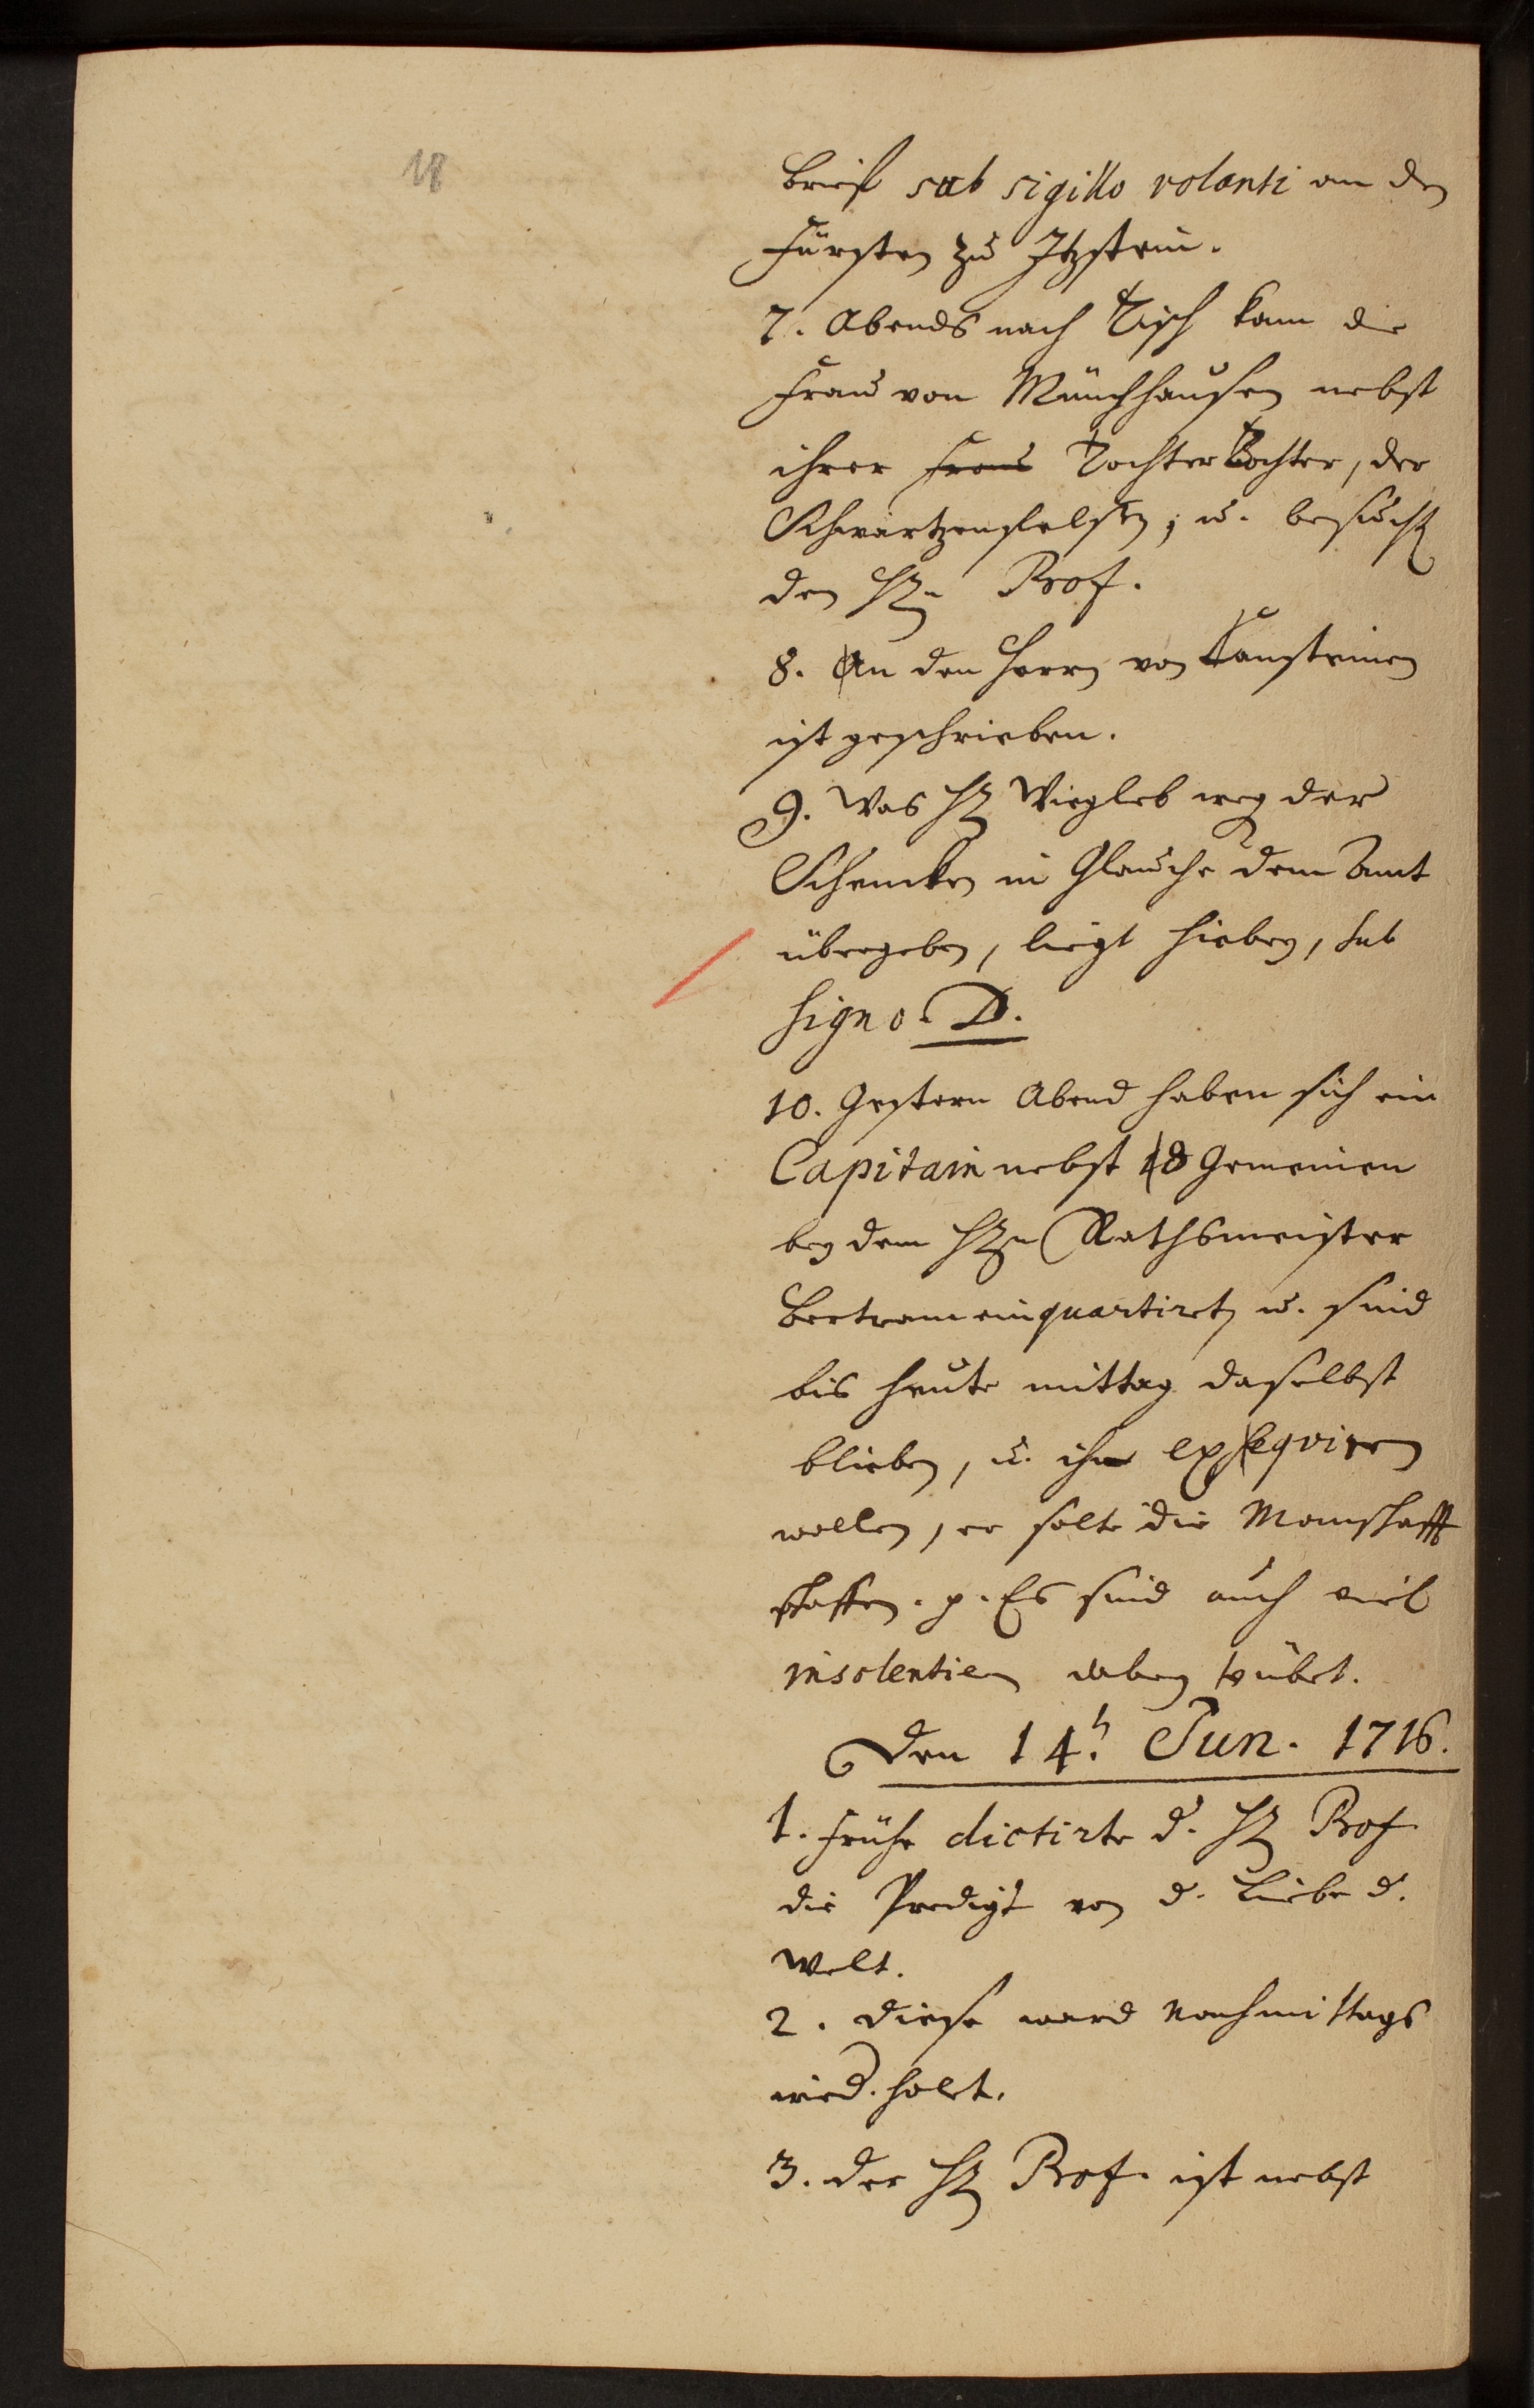 18
brief sub sigillo volanti an den
Fürsten zu Itzstein.
7. Abends nach Tisch kam die
Frau von Münchhausen nebst
ihrer Frau Tochter Tochter, der
Schwartzenfelsin; u. besucht
den H. Prof.
8. An den Herrn von Cansteinen
ist geschrieben.
9. Was H. Wiegleb weg. der
Schencken in Glaucha dem Amt
übergeben, liegt hiebey, sub
signo. D.
10. Gestern Abend haben sich ein
Capitain nebst 18 Gemeinen
bey dem H. Rathsmeister
Bertram einquartiret, u. sind
bis heute mittag daselbst
blieben, u. ihn exequiren
wollen, er solte die Manschafft
schaffen. p. Es sind auch viel
insolentien dabey verübet.
Den 14. Jun. 1716.
1. Frühe dictirte d. H. Prof.
die Predigt von d. Liebe d.
Welt.
2. Diese ward Nachmittags
wied.holet.
3. Der H. Prof. ist nebst